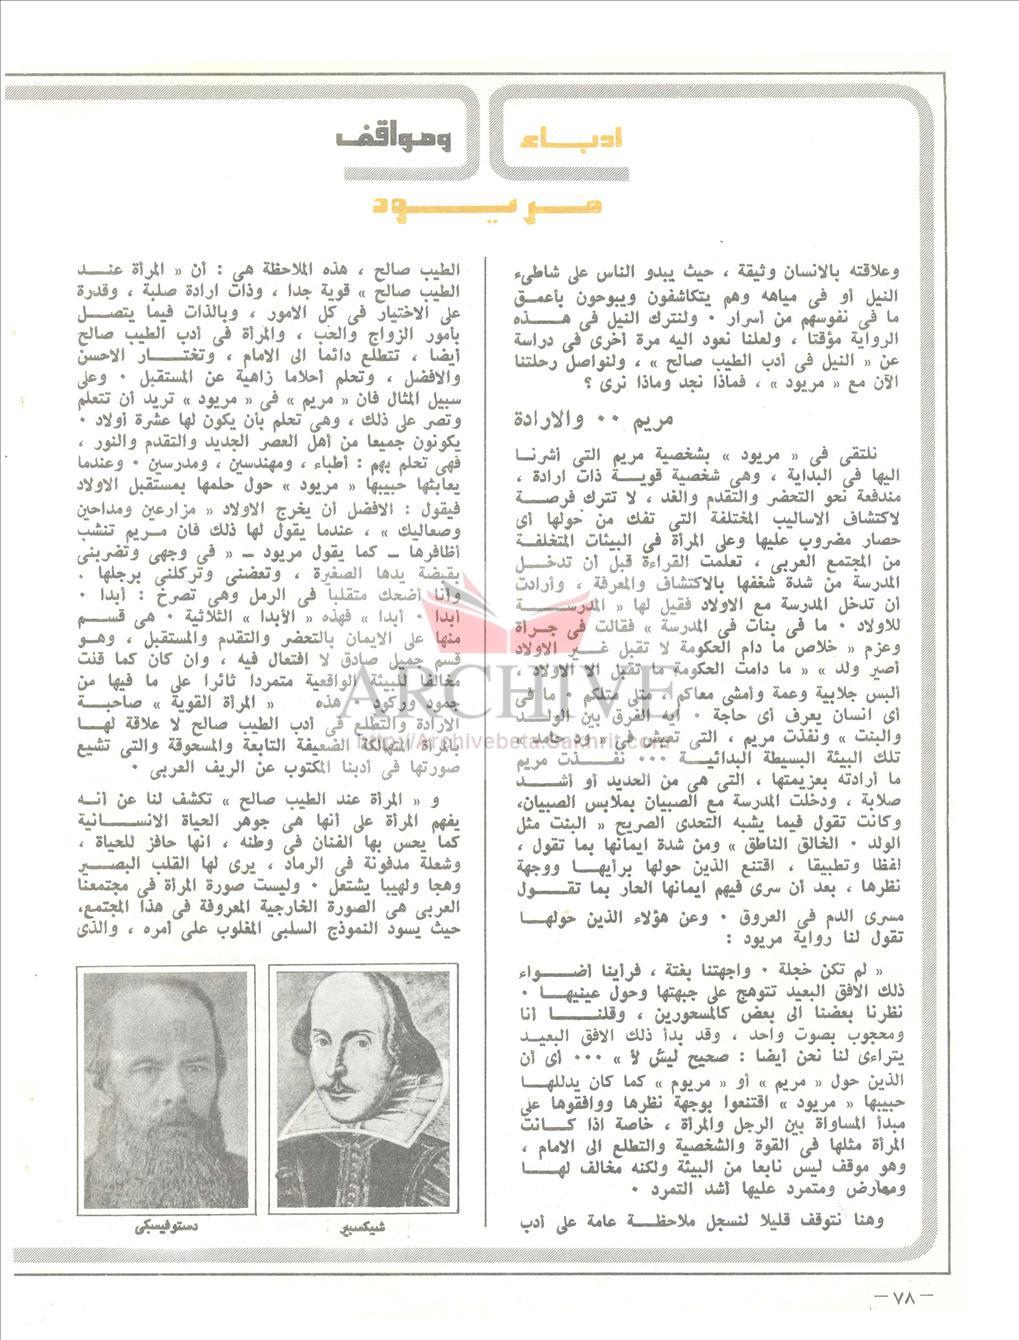 ادباء ومواقف
مريود
وعلاقته بالانسان وثيقة ، حيث يبدو الناس على شاطىء
النيل أو فى مياهه وهم يتكاشفون ويبوحون بأعمق
ما فى نفوسهم من أسرار ٠ ولنترك النيل فى هذه
الرواية مؤقتا ، ولعلنا نعود اليه مرة أخرى فى دراسة
عن « النيل فى أدب الطيب صالح » ، ولنواصل رحلتنا
الآن مع « مريود » ، فماذا نجد وماذا نرى ؟
مريم ٠٠ والارادة
نلتقى فى « مريود » بشخصية مريم التى أشرنا
اليها فى البداية ، وهى شخصية قوية ذات ارادة ،
مندفعة نحو التحضر والتقدم والغد ، لا تترك فرصة
لاكتشاف الاساليب المختلفة التى تفك من حولها أى
حصار مضروب عليها وعلى المرأة فى البيئات المتخلفة
من المجتمع العربى ، تعلمت القراءة قبل أن تدخل
المدرسة من شدة شغفها بالاكتشاف والمعرفة ، وأرادت
أن تدخل المدرسة مع الاولاد فقيل لها « المدرسة
للاولاد ٠ ما فى بنات فى المدرسة » فقالت فى جرأة
وعزم « خلاص ما دام الحكومة لا تقبل غير الاولاد
أصير ولد » « ما دامت الحكومة ما تقبل الا الاولاد ،
ألبس جلابية وعمة وأمشى معاكم ، مثلى مثلكم ٠ ما فى
أى انسان يعرف أى حاجة ٠ أيه الفرق بين الولد
والبنت » ونفذت مريم ، التى تعيش فى « ود حامد »
تلك البيئة البسيطة البدائية ٠٠٠ نفذت مريم
ما أرادته بعزيمتها ، التى هى من الحديد أو أشد
صلابة ، ودخلت المدرسة مع الصبيان بملابس الصبيان،
وكانت تقول فيما يشبه التحدى الصريح « البنت مثل
الولد ٠ الخالق الناطق » ومن شدة ايمانها بما تقول ،
لفظا وتطبيقا ، اقتنع الذين حولها برأيها ووجهة
نظرها ، بعد أن سرى فيهم ايمانها الحار بما تقول
مسرى الدم فى العروق ٠ وعن هؤلاء الذين حولها
تقول لنا رواية مريود :
« لم تكن خجلة ٠ واجهتنا بغتة ، فرأينا أضواء
ذلك الافق البعيد تتوهج على جبهتها وحول عينيها ٠
نظرنا بعضنا الى بعض كالمسحورين ، وقلنا أنا
ومحجوب بصوت واحد ، وقد بدأ ذلك الافق البعيد
يتراءى لنا نحن أيضا : صحيح ليش لأ » ٠٠٠ أى أن
الذين حول « مريم » أو « مريوم » كما كان يدللها
حبيبها « مريود » اقتنعوا بوجهة نظرها ووافقوها على
مبدأ المساواة بين الرجل والمرأة ، خاصة اذا كانت
المرأة مثلها فى القوة والشخصية والتطلع الى الامام ،
وهو موقف ليس نابعا من البيئة ولكنه مخالف لها
ومعارض ومتمرد عليها أشد التمرد ٠
وهنا نتوقف قليلا لنسجل ملاحظة عامة على أدب
الطيب صالح ، هذه الملاحظة هى : أن « المرأة عند
الطيب صالح » قوية جدا ، وذات ارادة صلبة ، وقدرة
على الاختيار فى كل الامور ، وبالذات فيما يتصل
بأمور الزواج والحب ، والمرأة فى أدب الطيب صالح
أيضا ، تتطلع دائما الى الامام ، وتختار الاحسن
والافضل ، وتحلم أحلاما زاهية عن المستقبل ٠ وعلى
سبيل المثال فان « مريم » فى « مريود » تريد أن تتعلم
وتصر على ذلك ، وهى تحلم بأن يكون لها عشرة أولاد ٠
يكونون جميعا من أهل العصر الجديد والتقدم والنور ،
فهى تحلم بهم : أطباء ، ومهندسين ، ومدرسين ٠ وعندما
يعابثها حبيبها « مريود » حول حلمها بمستقبل الاولاد
فيقول : الافضل أن يخرج الاولاد « مزارعين ومداحين
وصعاليك » ، عندما يقول لها ذلك فان مريم تنشب
أظافرها ــ كما يقول مريود ــ « فى وجهى وتضربنى
بقبضة يدها الصغيرة ، وتعضنى وتركلنى برجلها ٠
وأنا أضحك متقلبا فى الرمل وهى تصرخ : أبدا ٠
أبدا ٠ أبدا » فهذه « الأبدا » الثلاثية ٠ هى قسم
منها على الايمان بالتحضر والتقدم والمستقبل ، وهو
قسم جميل صادق لا افتعال فيه ، وان كان كما قلت
مخالفا للبيئة الواقعية متمردا ثائرا على ما فيها من
جمود وركود ٠ هذه « المرأة القوية » صاحبة
الارادة والتطلع فى أدب الطيب صالح لا علاقة لها
بالمرأة المتهالكة الضعيفة التابعة والمسحوقة والتى تشيع
صورتها فى أدبنا المكتوب عن الريف العربى ٠
و « المرأة عند الطيب صالح » تكشف لنا عن أنه
يفهم المرأة على أنها هى جوهر الحياة الانسانية
كما يحس بها الفنان فى وطنه ، انها حافز للحياة ،
وشعلة مدفونة فى الرماد ، يرى لها القلب البصير
وهجا ولهيبا يشتعل ٠ وليست صورة المرأة فى مجتمعنا
العربى هى الصورة الخارجية المعروفة فى هذا المجتمع،
حيث يسود النموذج السلبى المغلوب على أمره ، والذى
شيكسبير
دستوفيسكى
ARCHIVE
http://Archivebeta.Sakhrit.com
ــ ٧٨ ــ